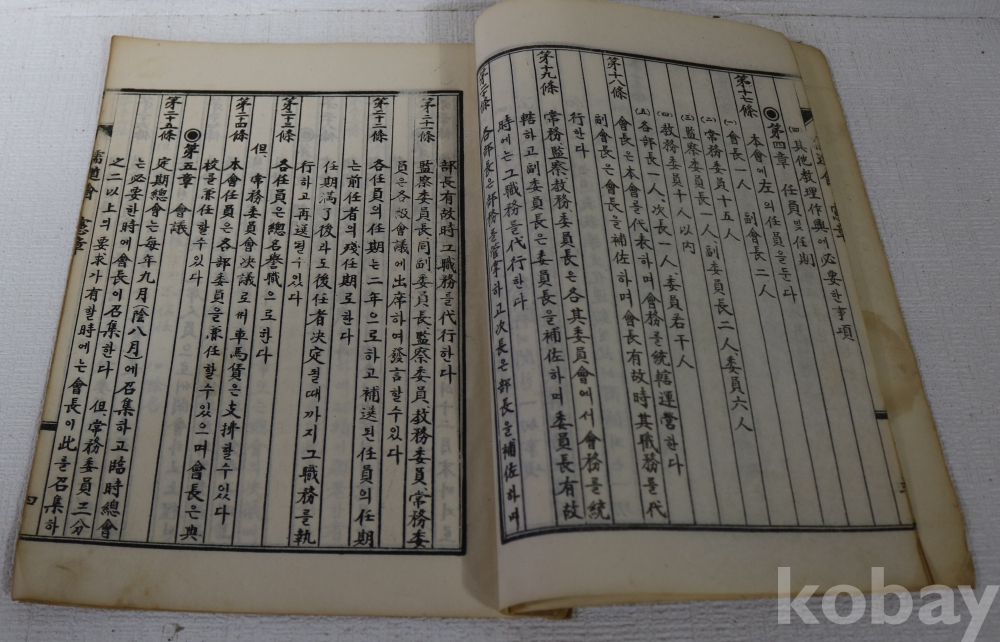 (四) 其他敎理作興에必要한事項
◉第四章 任員및任期
第十七條 本會에左의任員을둔다
(一) 會長一人 副會長二人
(二) 常務委員十五人
(三) 監察委員長一人 副委員長二人 委員六人
(四) 敎務委員千人以內
(五) 各部長一人、次長一人、委員若干人
第十八條 會長은本會를代表하며會務를統轄運營한다
副會長은會長을補佐하며會長有故時其職務를代
行한다
第十九條 常務監察敎務委員長은各其委員會에서會務를統
轄하고副委員長은委員長을補佐하며委員長有故
時에는그職務를代行한다
第二十條 各部長은部務를管掌하고次長은部長을補佐하며
部長有故時그職務를代行한다
第二十一條 監察委員長同副委員長監察委員、敎務委員、常務委
員은各級會議에出席하여發言할수있다
第二十二條 各任員의任期는二年으로하고補選된任員의任期
는前任者의殘任期로한다
任期滿了後라도後任者決定될때까지그職務를執
行하고再選될수있다
第二十三條 各任員은總名譽職으로한다
但 常務委員會决議로써車馬賃은支拂할수있다
第二十四條 本會任員은各部委員을兼任할수있으며會長은典
校를兼任할수있다
◉第五章 會議
第二十五條 定期總會는每年九月(陰八月)에召集하고臨時總會
는必要한時에會長이召集한다 但、常務委員三分
之二以上의要求가有할時에는會長이此를召集하
儒道會 憲章
四
kobay